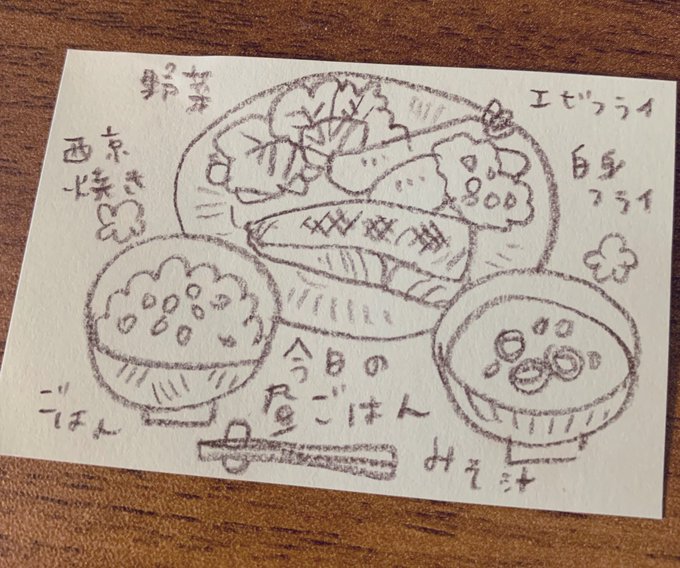 野菜
エビフライ
西京
焼き
白身
フライ
今日の
昼ごはん
ごはん
みそ汁